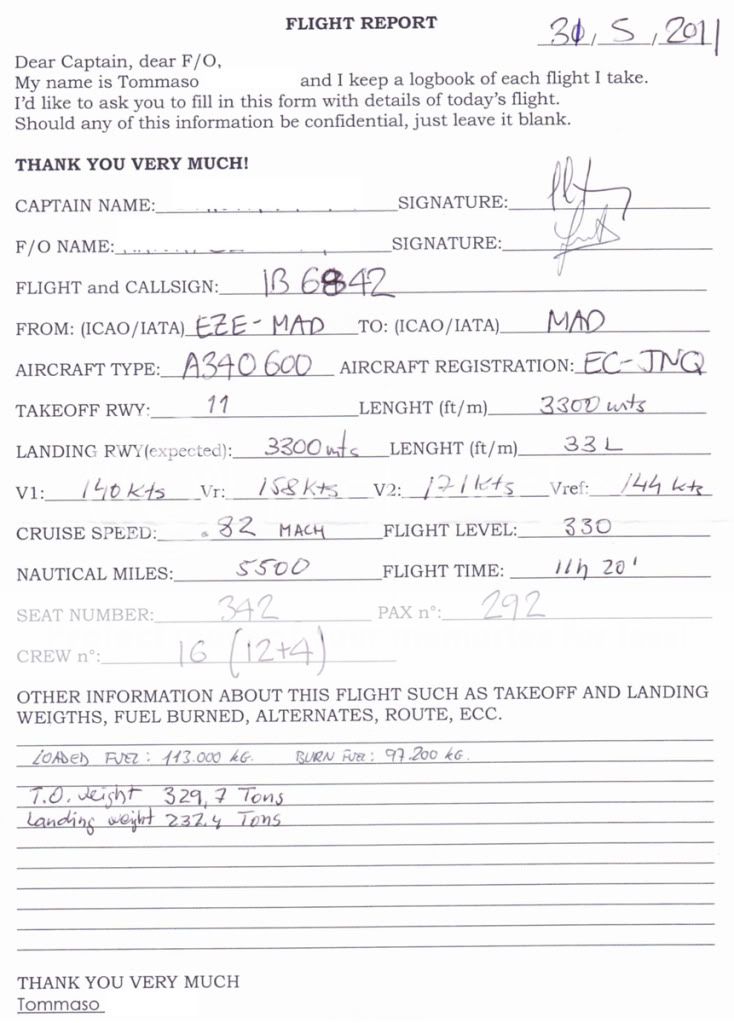 FLIGHT REPORT
31, 5, 2011
Dear Captain, dear F/O,
My name is Tommaso and I keep a logbook of each flight I take.
I'd like to ask you to fill in this form with details of today's flight.
Should any of this information be confidential, just leave it blank.
THANK YOU VERY MUCH!
CAPTAIN NAME: SIGNATURE:
F/O NAME: SIGNATURE:
FLIGHT and CALLSIGN: IB 6842
FROM: (ICAO/IATA) EZE - MAD TO: (ICAO/IATA) MAD
AIRCRAFT TYPE: A340 600 AIRCRAFT REGISTRATION: EC-JNQ
TAKEOFF RWY: 11 LENGHT (ft/m) 3300 mts
LANDING RWY(expected): 3300 mts LENGHT (ft/m) 33L
V1: 140 kts Vr: 158 kts V2: 171 kts Vref: 144 kts
CRUISE SPEED: .82 MACH FLIGHT LEVEL: 330
NAUTICAL MILES: 5500 FLIGHT TIME: 11h 20'
SEAT NUMBER: 342 PAX n°: 292
CREW n°: 16 (12+4)
OTHER INFORMATION ABOUT THIS FLIGHT SUCH AS TAKEOFF AND LANDING
WEIGTHS, FUEL BURNED, ALTERNATES, ROUTE, ECC.
LOADED FUEL: 113.000 KG. BURN FUEL: 97.200 KG.
T.O. Weight 329,7 Tons
Landing weight 232.4 Tons
THANK YOU VERY MUCH
Tommaso